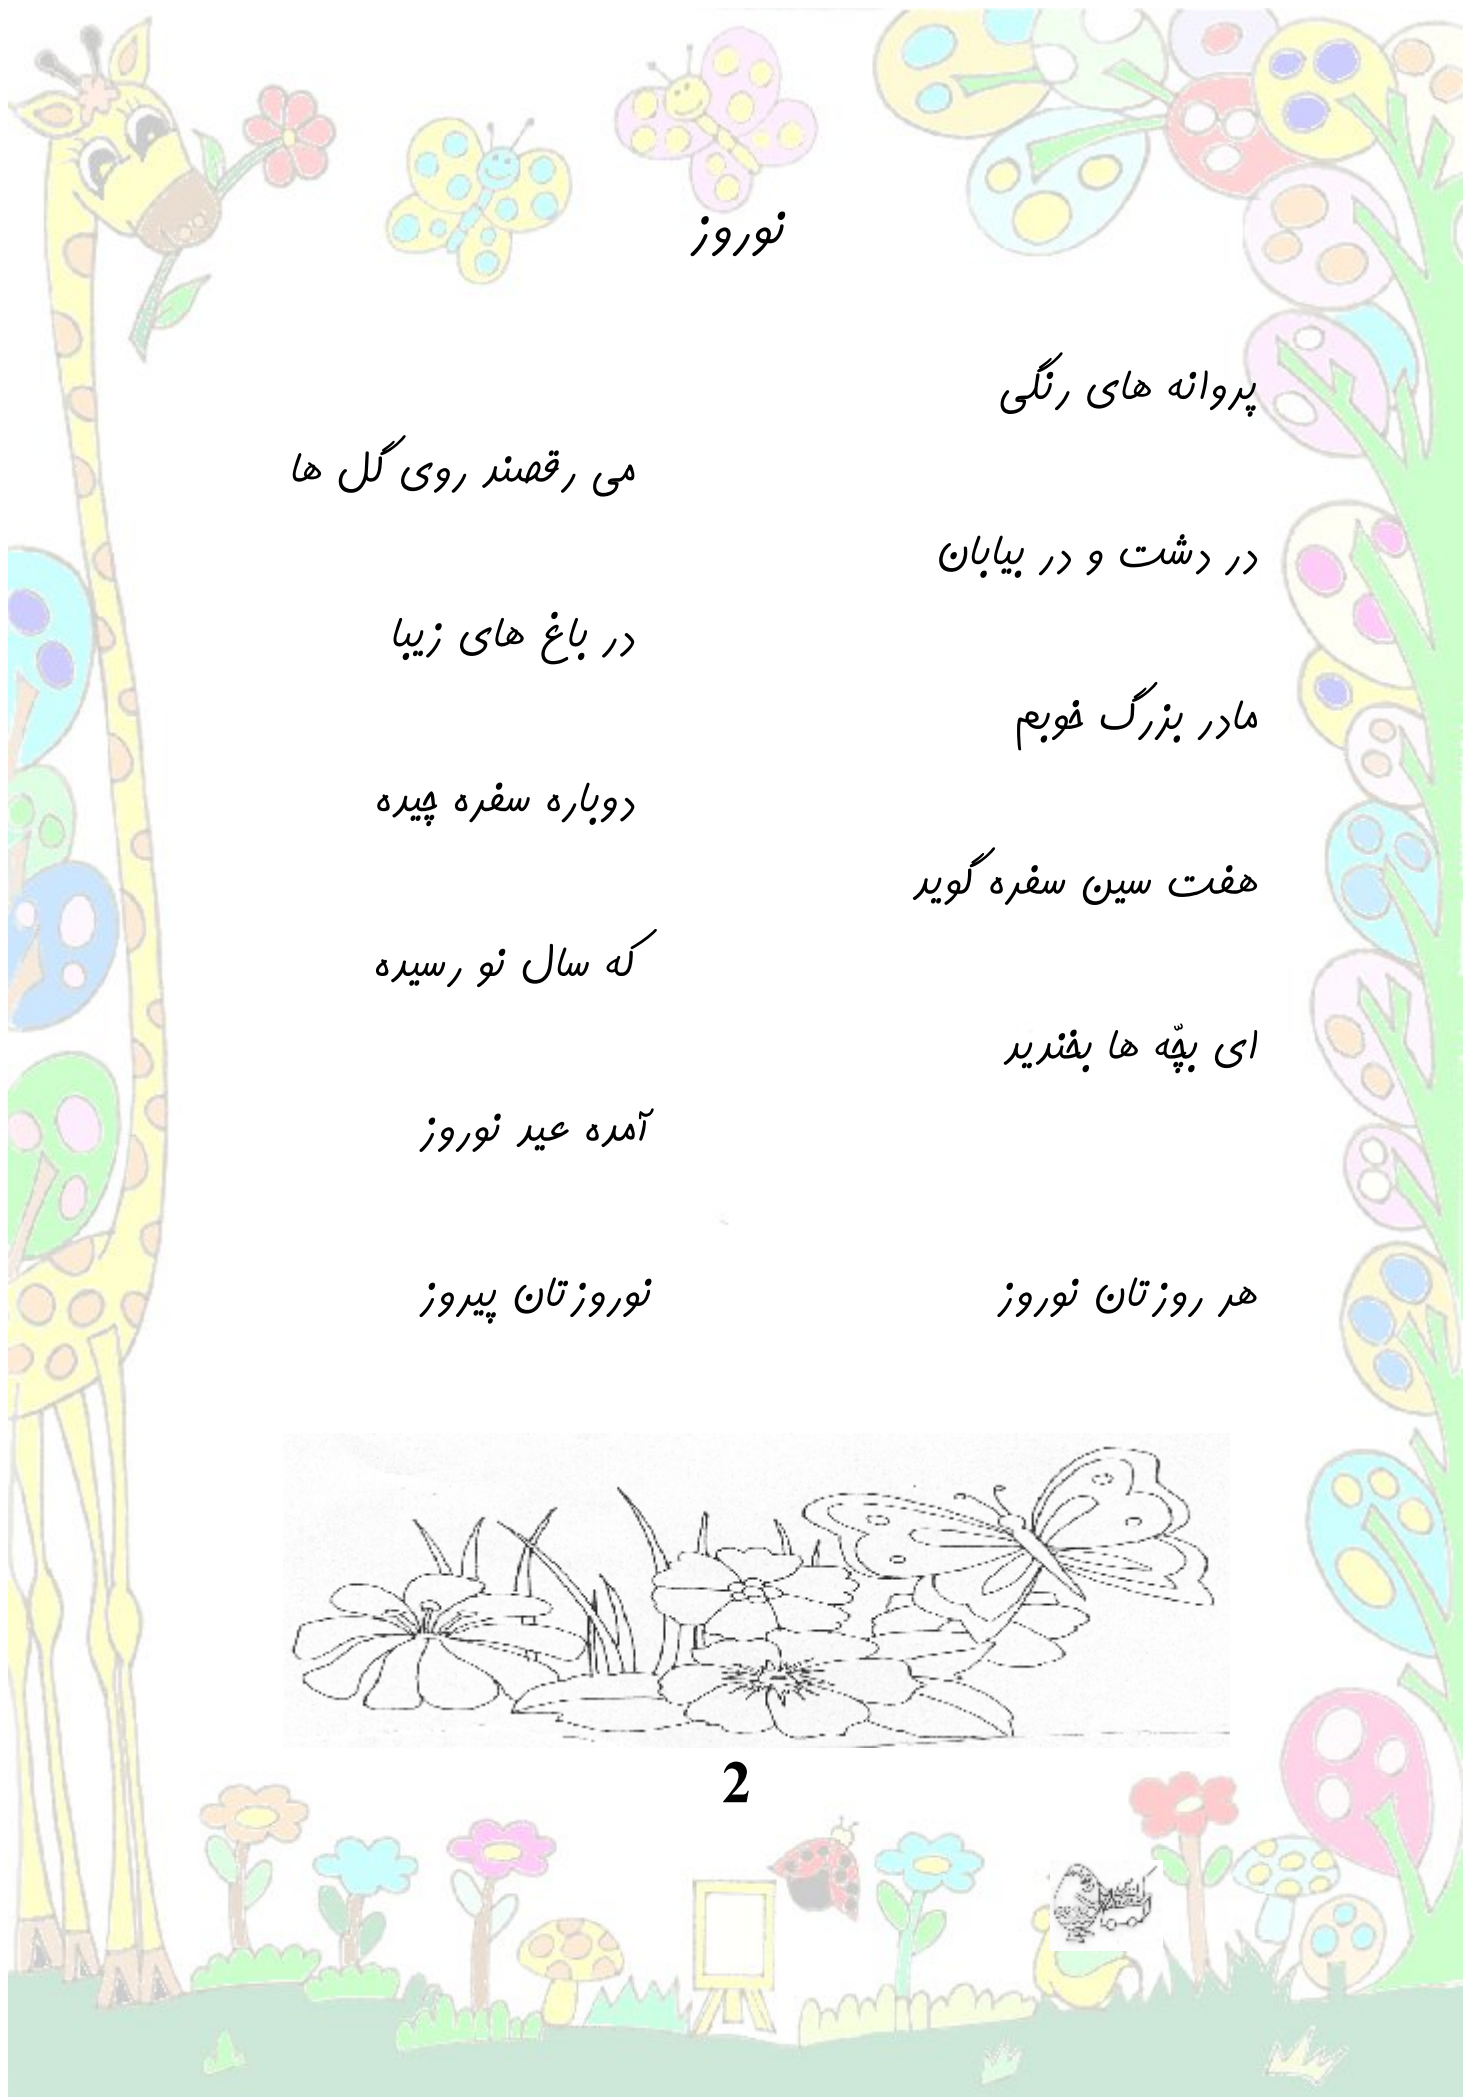 نوروز
پروانه های رنگی
می رقصند روی گل ها
در دشت و در بیابان
در باغ های زیبا
مادر بزرگ خوبم
دوباره سفره چیده
هفت سین سفره گوید
که سال نو رسیده
ای بچّه ها بخندید
آمده عید نوروز
هر روزتان نوروز
نوروزتان پیروز
2